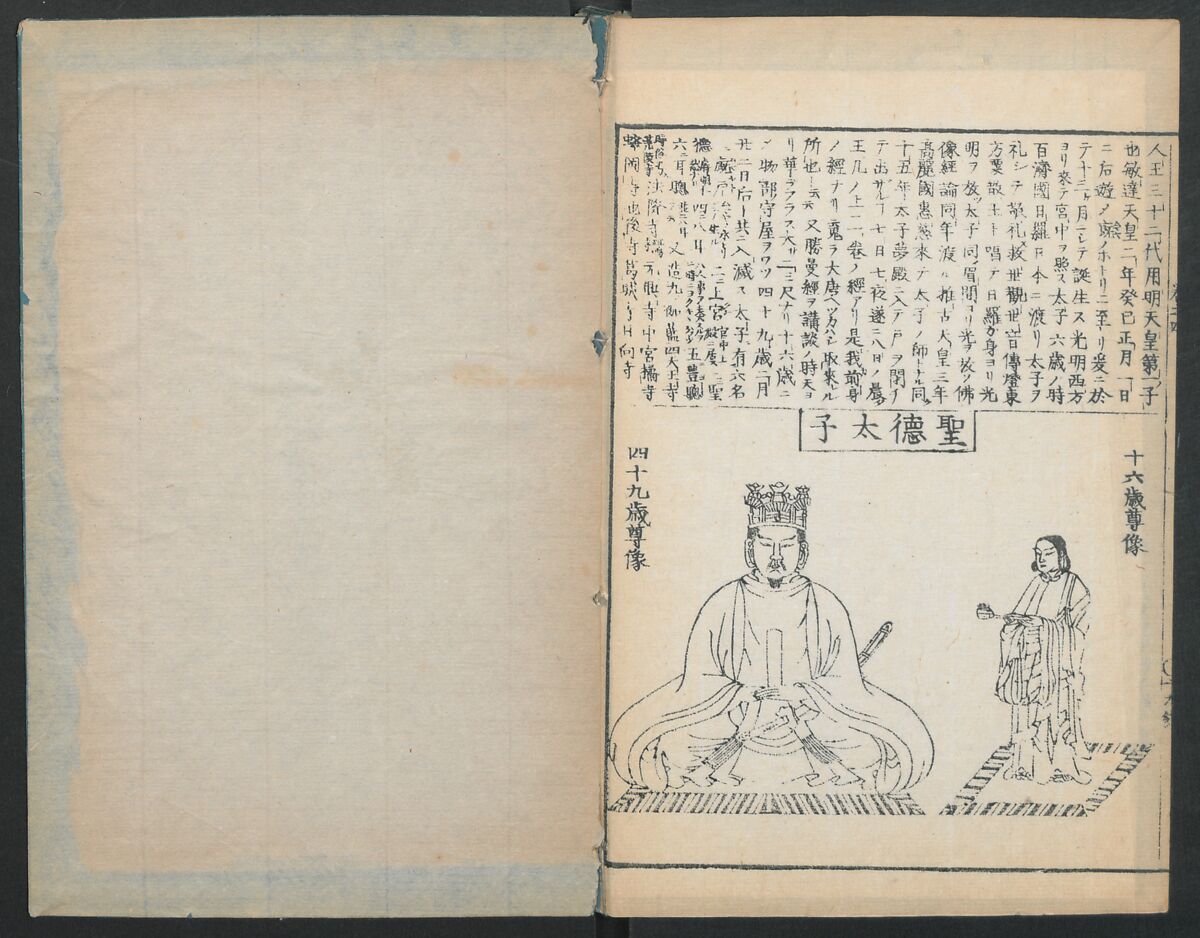 人王三十二代用明天皇第一ノ子
也敏達天皇二年癸巳正月一日
ニ后遊メ廐ノホトリニ至リ爰ニ於
テ十三ヶ月ニシテ誕生ス光明西方
ヨリ來テ宮中ヲ照ス太子六歳ノ時
百濟國日羅日本ニ渡リ太子ヲ
礼シテ敬礼救世觀世音傳燈東
方粟散王ト唱テ日羅カ身ヨリ光
明ヲ放太子同ク眉間ヨリ光ヲ放ツ佛
像經論同年渡ル推古天皇三年
髙麗國惠慈來テ太子ノ師トナル同
十五年太子夢殿ニ入テ戸ヲ閉
テ出ザル7七日七夜遂ニ八日ノ晨
玉几ノ上ニ一卷ノ經アリ是我前身
ノ經ナリ魂ヲ大唐ヘツカハシ取來ル
所也ト云云又勝曼經ヲ講談ノ時天ヨ
リ華ヲフラス大サ二三尺ナリ十六歳ニ
ノ物部守屋ヲウツ四十九歳二月
廿二日后ト共ニ入滅ス太子ニ有六名
二上宮 三聖
德 四八耳 五豊聰
六耳聰 又造九伽藍四天王寺
法隆寺 元興寺中宮橘寺
蜂岡寺池後寺葛城寺日向寺
聖德太子
十六歳尊像
四十九歳尊像